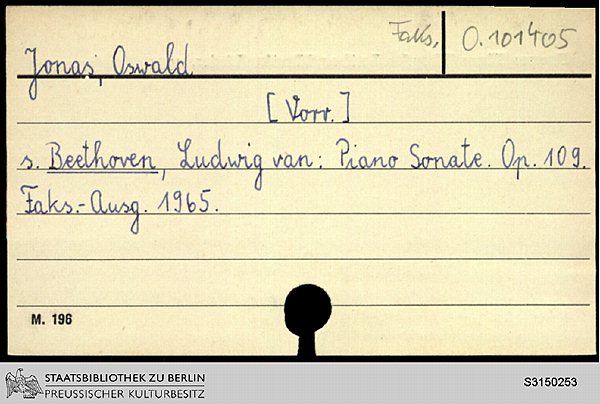 Faks. O.101405
Jonas, Oswald
[Vorr.]
s. Beethoven, Ludwig van: Piano Sonate. Op. 109.
Faks.-Ausg. 1965.
M. 196
STAATSBIBLIOTHEK ZU BERLIN
PREUSSISCHER KULTURBESITZ
S3150253